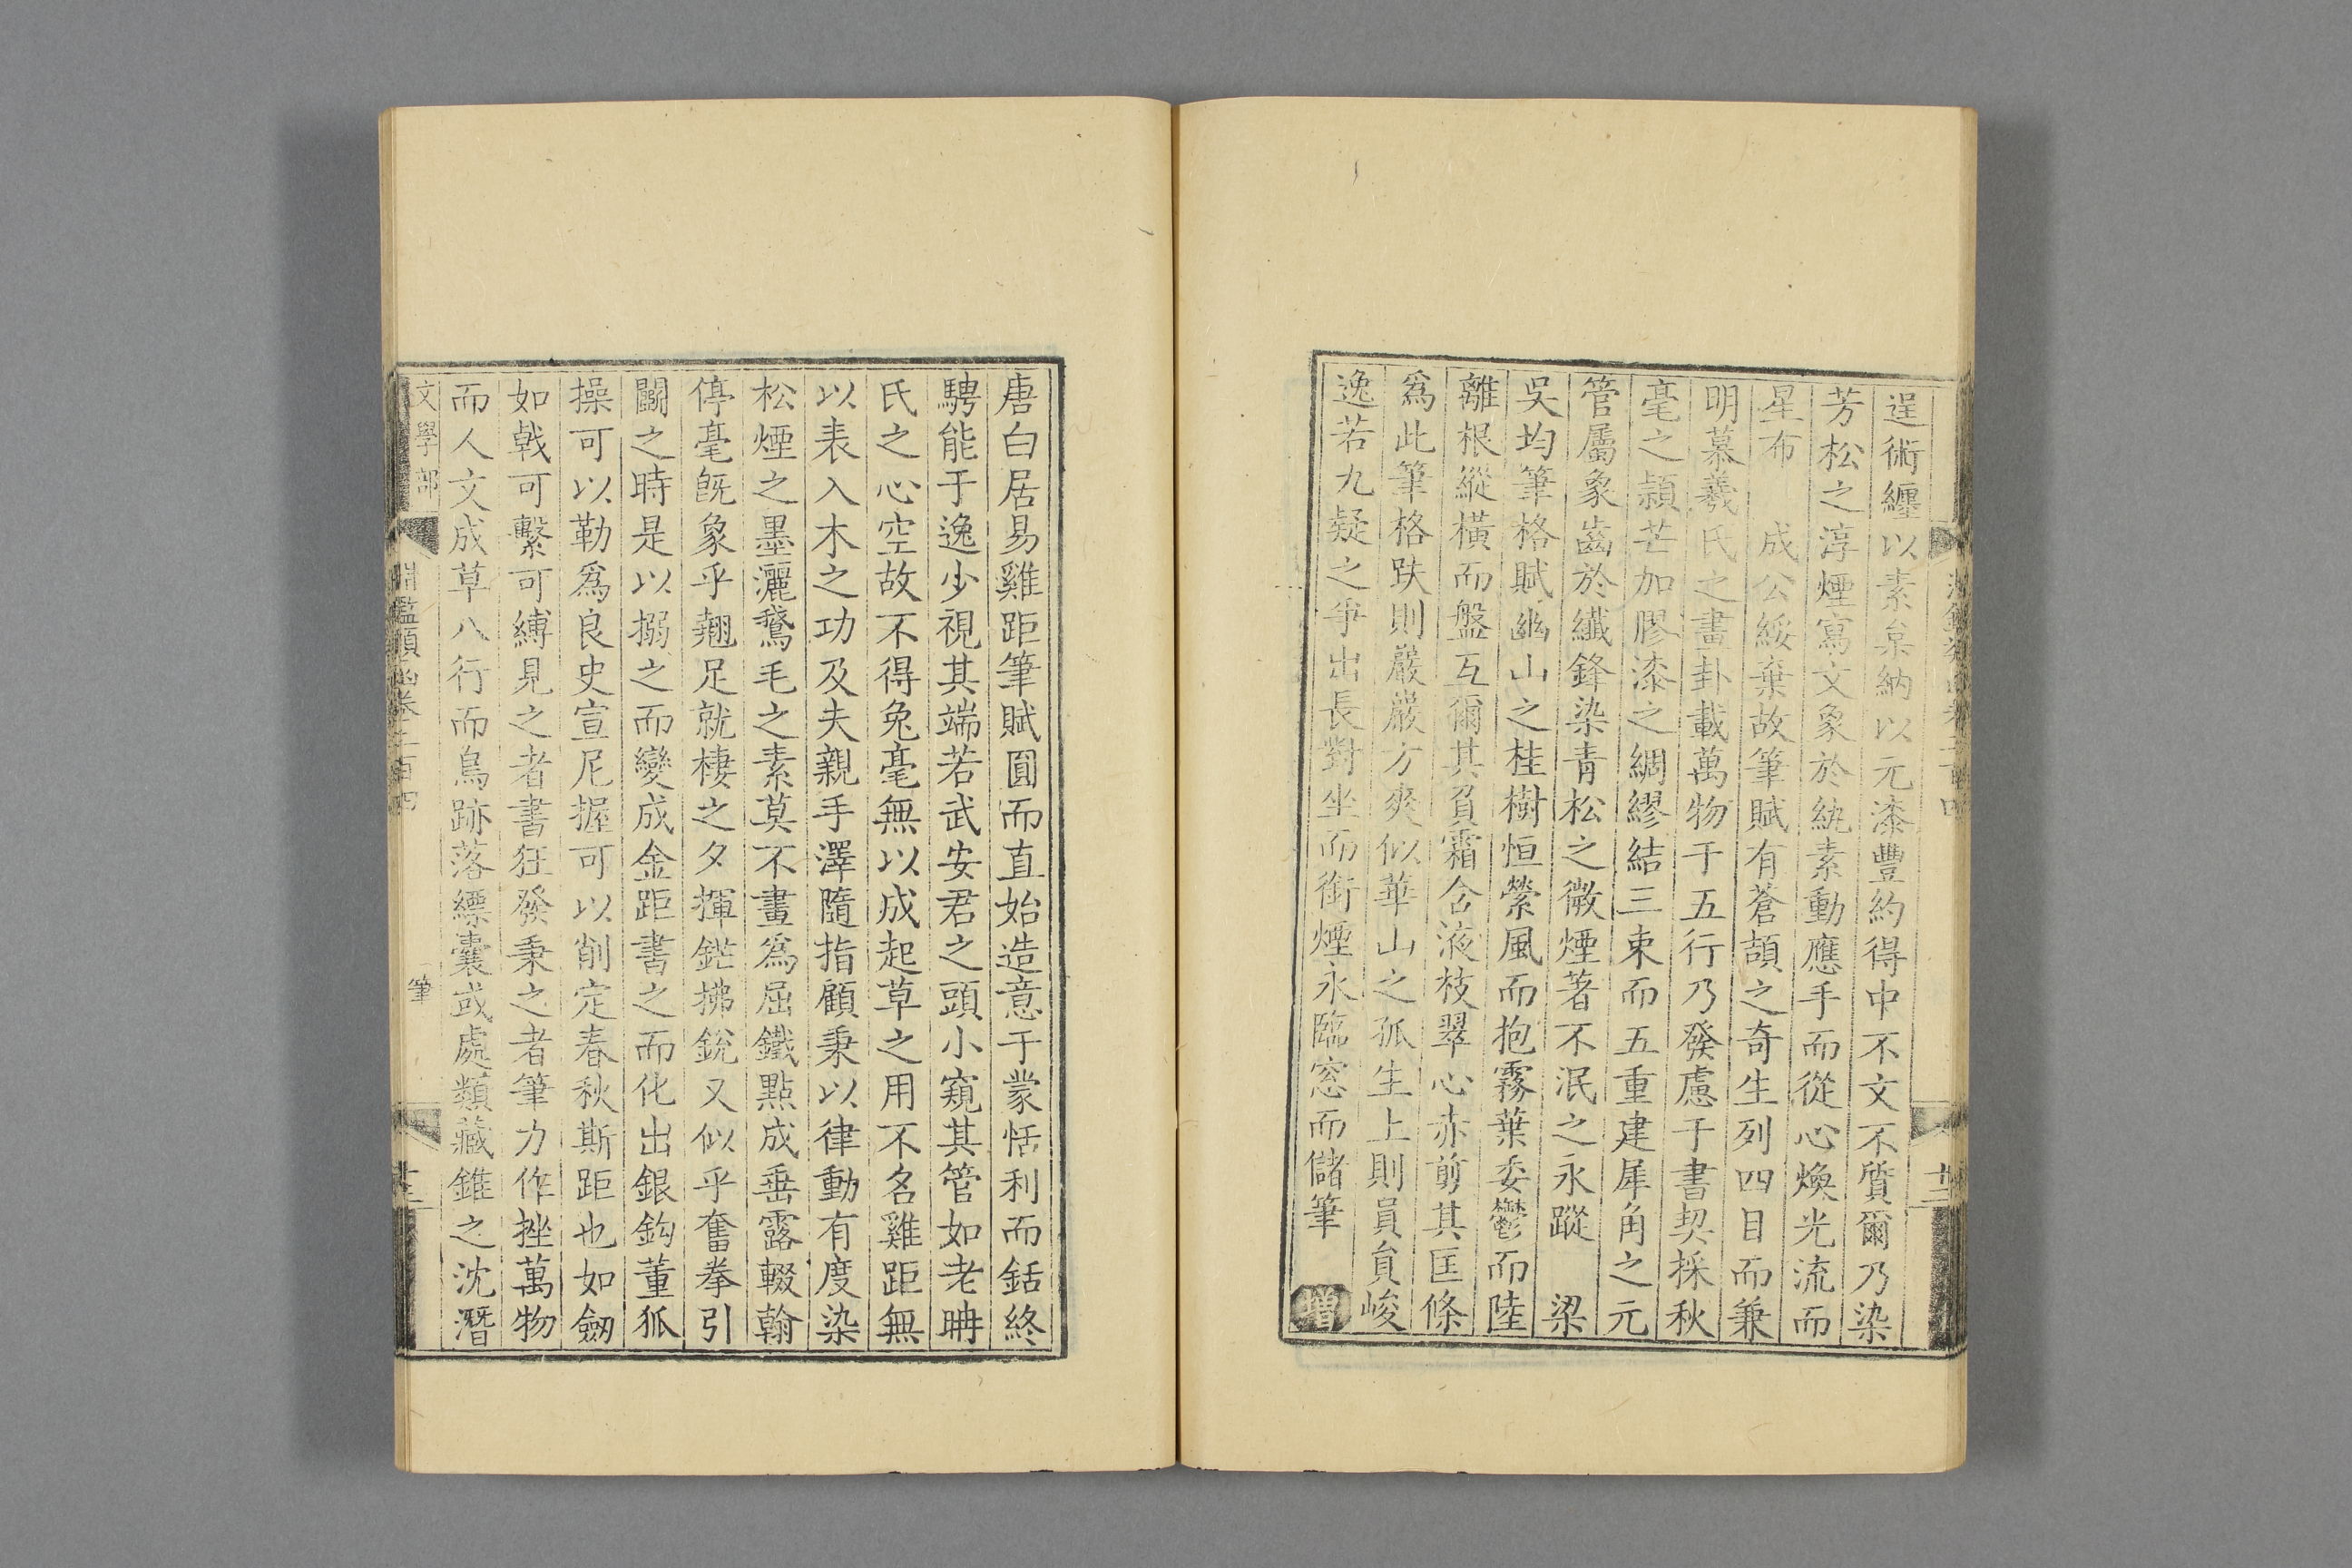 逞術纏以素枲納以元漆豐約得中不文不質爾乃染
芳松之淳煙寫文象於紈素動應手而從心煥光流而
星布　成公綏棄故筆賦有蒼頡之奇生列四目而兼
明慕羲氏之畫卦載萬物于五行乃發慮于書契採秋
毫之頴芒加膠漆之綢繆結三束而五重建犀角之元
管屬象齒於纖鋒染青松之微煙著不泯之永蹤　梁
吳均筆格賦幽山之桂樹恒縈風而抱霧葉委鬱而陸
離根縱橫而盤互爾其負霜含液枝翠心赤剪其匡條
爲此筆格趺則巖巖方爽似華山之孤生上則員員峻
逸若九疑之爭出長對坐而銜煙永臨窓而儲筆　增
唐白居易雞距筆賦圓而直始造意于蒙恬利而銛終
騁能于逸少視其端若武安君之頭小窺其管如老聃
氏之心空故不得兔毫無以成起草之用不名雞距無
以表入木之功及夫親手澤隨指顧秉以律動有度染
松煙之墨灑鵞毛之素莫不畫爲屈鐵點成垂露輟翰
停毫旣象乎翹足就棲之夕揮鋩拂銳又似乎奮拳引
鬭之時是以搦之而變成金距書之而化出銀鈎董狐
操可以勒爲良史宣尼握可以削定春秋斯距也如劒
如戟可繫可縛見之者書狂發秉之者筆力作挫萬物
而人文成草八行而鳥跡落縹囊或處類藏錐之沈潛
文學部　淵鑑類函卷二百四　筆　十三